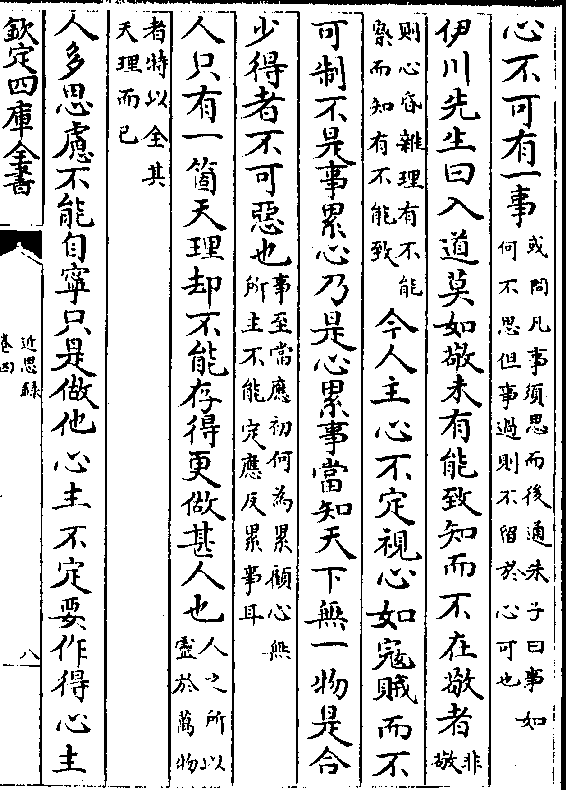 心不可有一事或問凡事須思而後通朱子曰事如
何不思但事過則不留於心可也
伊川先生曰入道莫如敬未有能致知而不在敬者非
敬
則心昏雜理有不能
察而知有不能致今人主心不定視心如寇賊而不
可制不是事累心乃是心累事當知天下無一物是合
少得者不可惡也事至當應初何為累顧心無
所主不能定應反累事耳
人只有一箇天理却不能存得更做甚人也人之所以
靈於萬物
者特以全其
天理而已
人多思慮不能自寧只是做他心主不定要作得心主
欽定四庫全書
近思錄
卷四
八